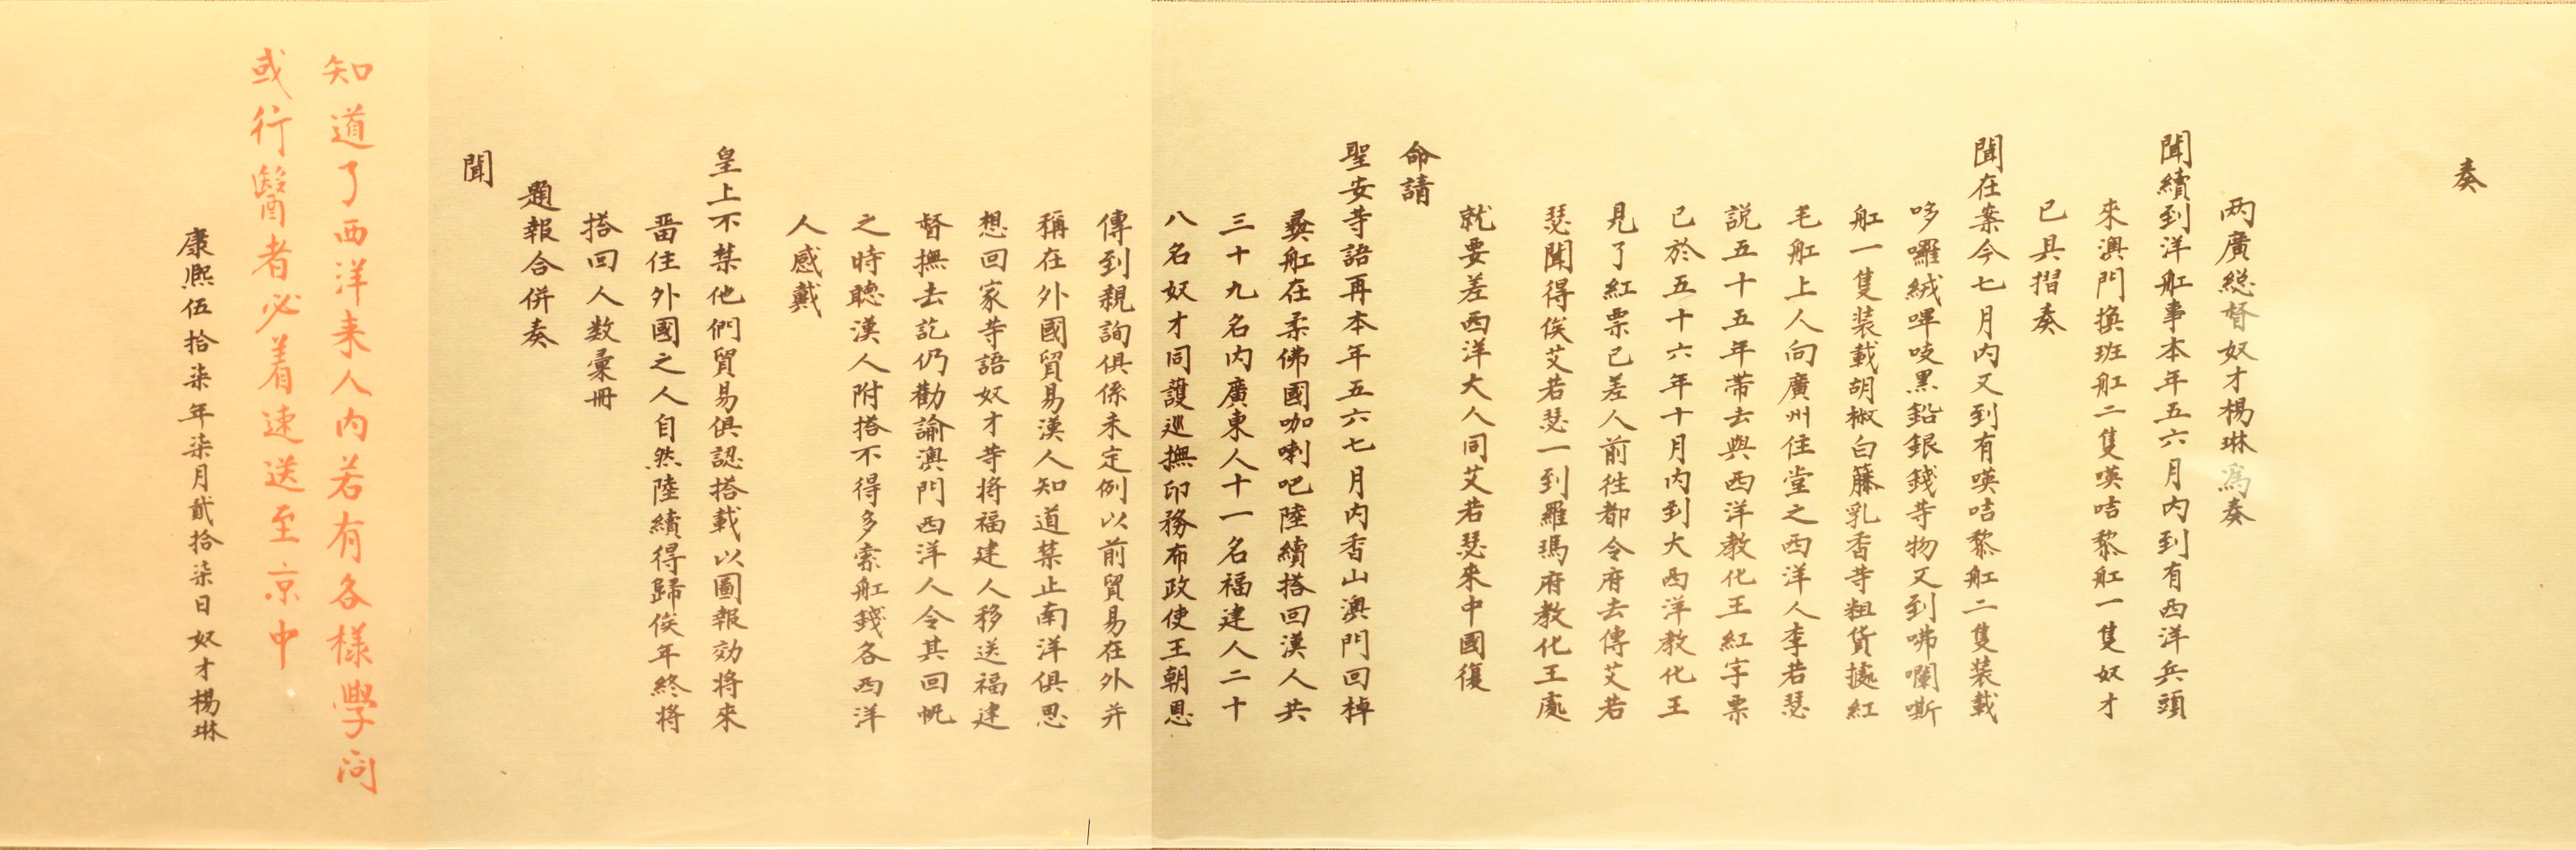 奏
两廣總督奴才楊琳爲奏
聞續到洋舡事本年五六月内到有西洋兵頭
來澳門換班舡二隻𠸄咭黎舡一隻奴才
已具摺奏
聞在案今七月内又到有𠸄咭黎舡二隻装載
哆囉絨嗶吱黑鉛銀錢等物又到咈囒嘶
舡一隻装載胡椒白籐乳香等粗貨據紅
毛舡上人向廣州住堂之西洋人李若瑟
説五十五年帶去與西洋教化王紅字票
已於五十六年十月内到大西洋教化王
見了紅票已差人前徃都令府去傳艾若
瑟聞得俟艾若瑟一到羅瑪府教化王處
就要差西洋大人同艾若瑟來中國復
命請
聖安等語再本年五六七月内香山澳門回棹
彝舡在柔佛國咖喇吧陸續搭回漢人共
三十九名内廣東人十一名福建人二十
八名奴才同護巡撫印務布政使王朝恩
傳到親詢俱係未定例以前貿易在外并
稱在外國貿易漢人知道禁止南洋俱思
想回家等語奴才等將福建人移送福建
督撫去訖仍勸諭澳門西洋人令其回帆
之時聽漢人附搭不得多索舡錢各西洋
人感戴
皇上不禁他們貿易俱認搭載以圖報効將來
畱住外國之人自然陸續得歸俟年終將
搭回人数彙冊
題報合併奏
聞
知道了西洋来人内若有各樣學问
或行醫者必着速送至京中
康熙伍拾柒年柒月貳拾柒日奴才楊琳